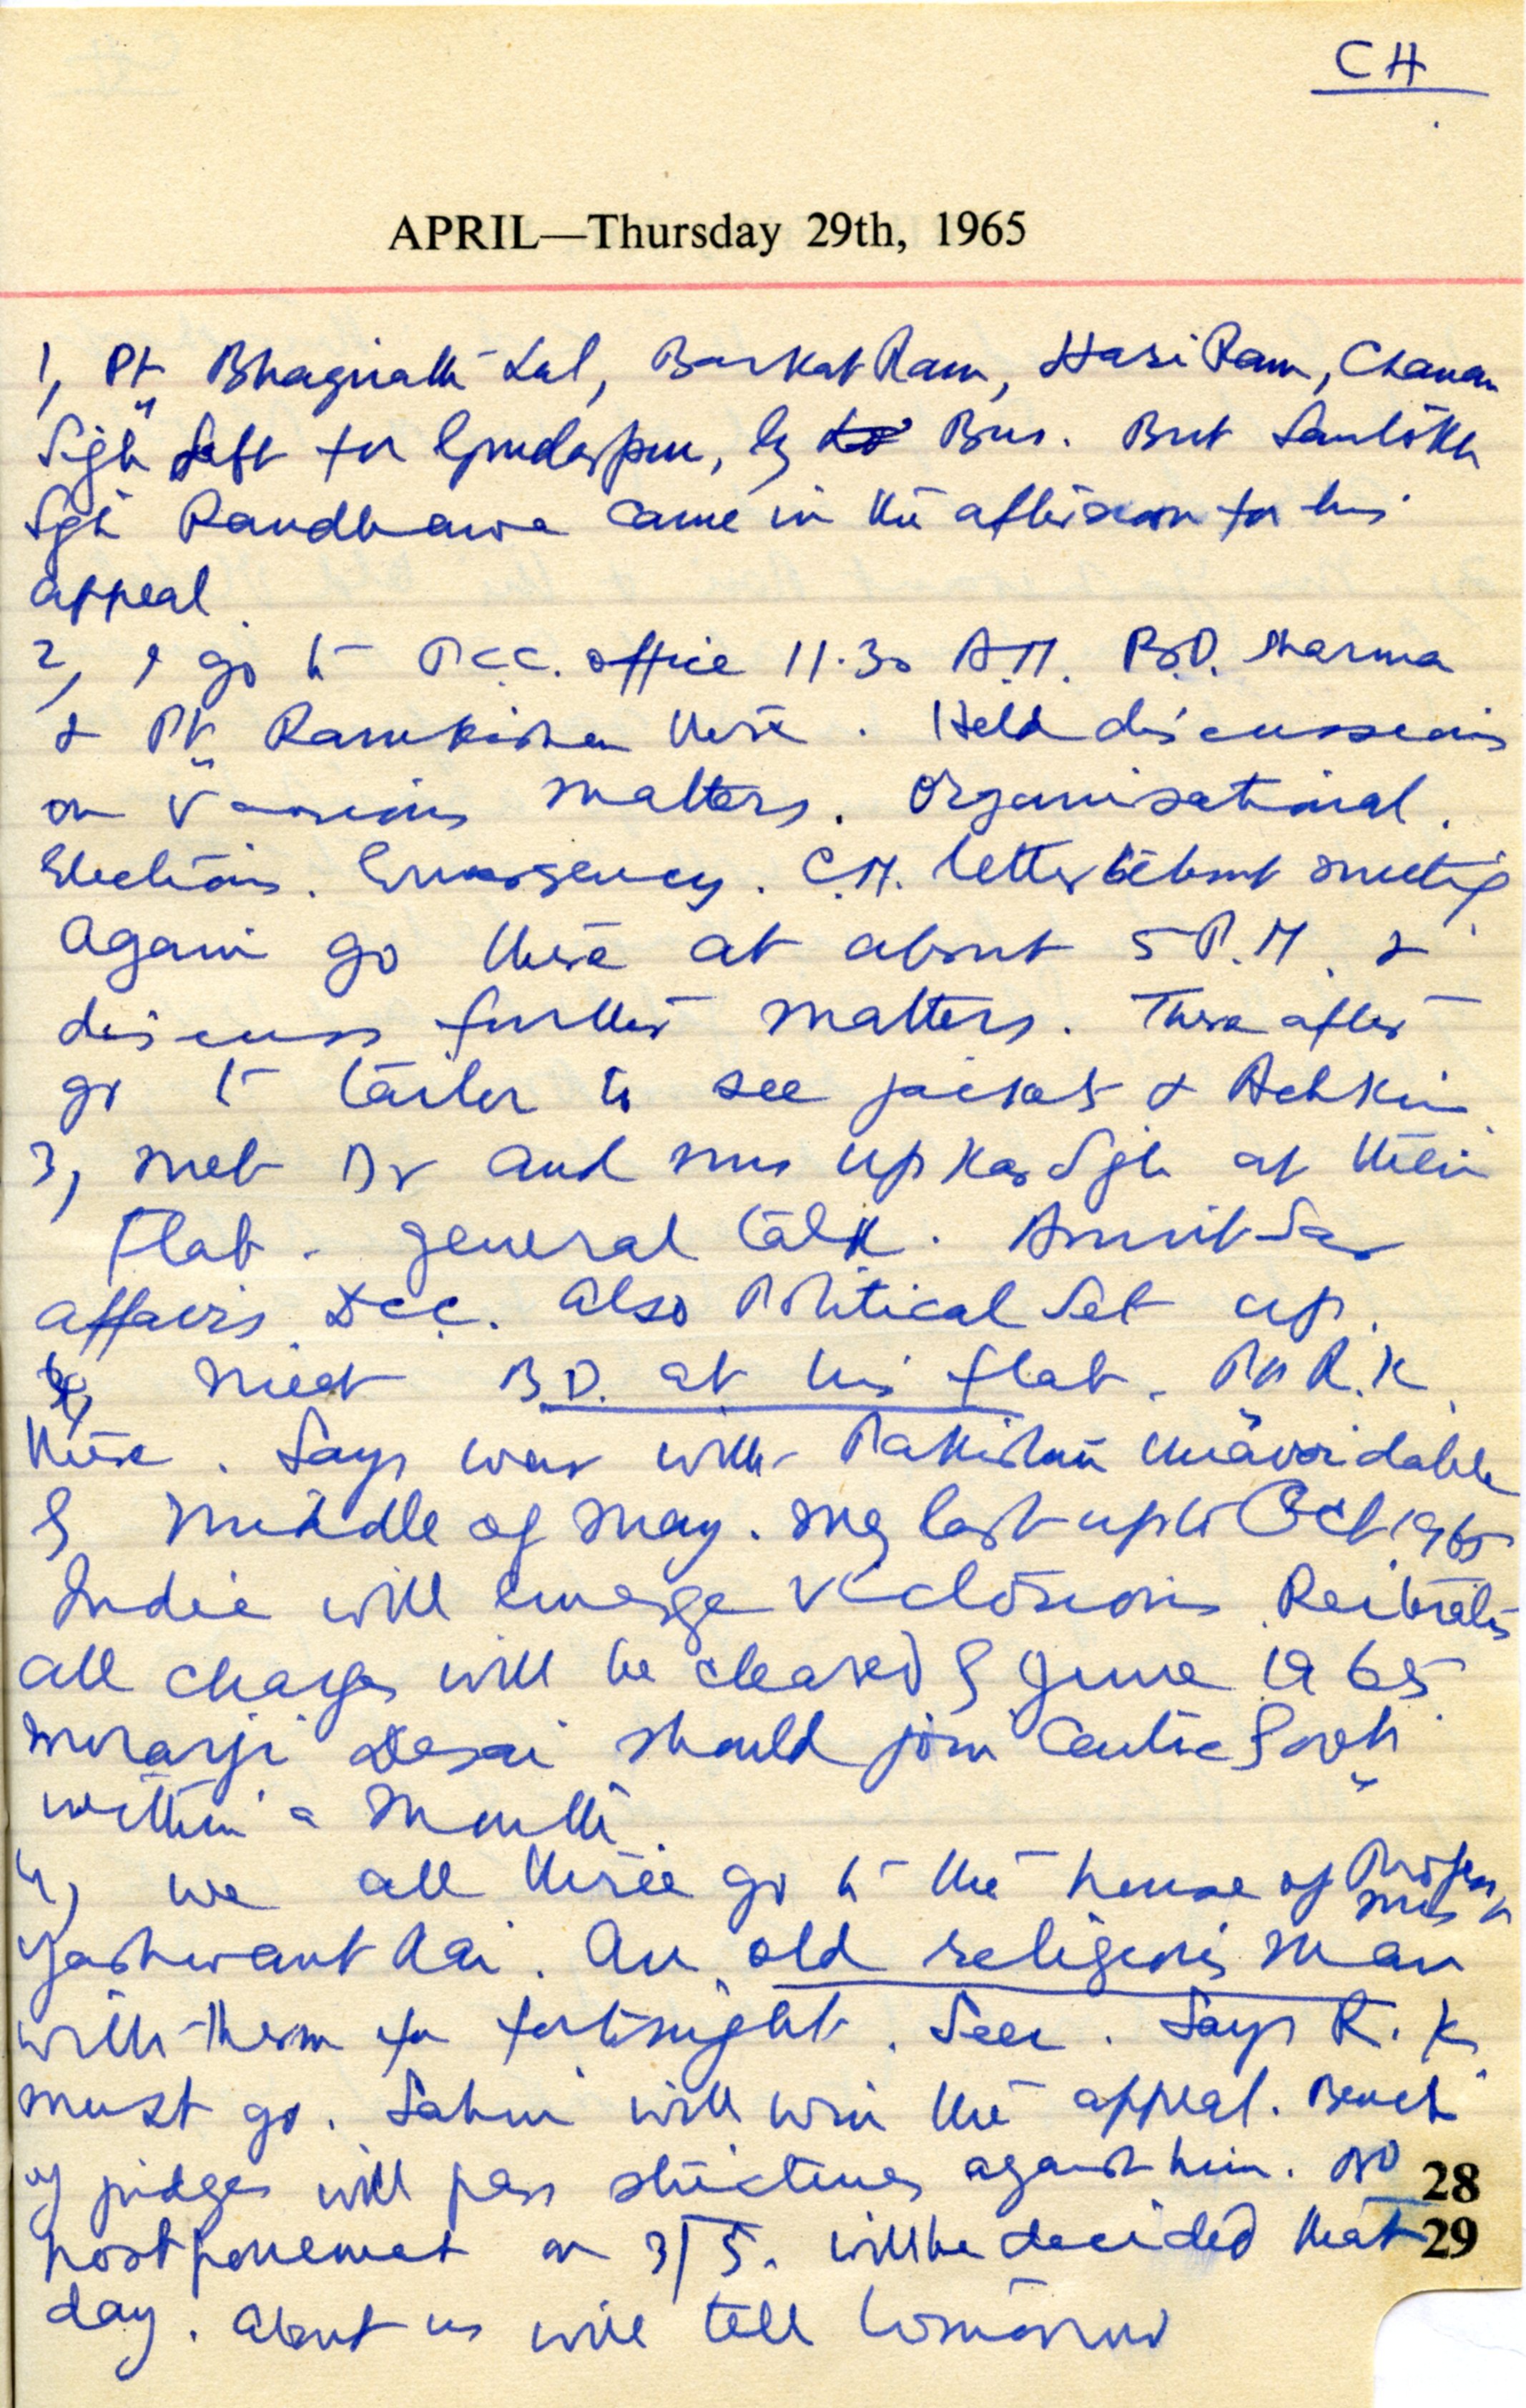 CH
APRIL—Thursday 29th, 1965
1, Pt Bhagirath Lal, Barkat Ram, Hari Ram, Chanan
Sigh left for Gurdaspur, by Bus. But Santokh
Sgh Randhawa came in the afternoon for his
appeal.
2, I go to P.C.C. office 11.30 A.M. B.D. Sharma
& Pt Ramkishen there. Held discussions
on various matters. Organisational.
Elections. Emergency. C.M. letter about meeting.
Again go there at about 5 P.M. &
discuss further matters. There after
go to tailor to see jacket & Achkin.
3, met Dr and Mrs Upkar Sgh at their
flat. general talk. Amritsar
affairs. DCC. Also Political Set up.
meet B.D. at his flat. Pt R.K.
there. Says war with Pakistan unavoidable
by middle of May. may last upto Oct. 1965
India will emerge victorious. Reiterates
all charges will be cleared by June 1965.
Morarji Desai should join Centre Govt
within a month.
4, we all three go to the house of Professor
Mrs
Yashwant Rai. An old religious man
with them for fortnight. Seer. Says R.K.
must go. Sahni will win the appeal. Bench
of judges will pass strictures against him. BD
28
postponement on 3/5. will be decided that
29
day. About us will tell tomorrow